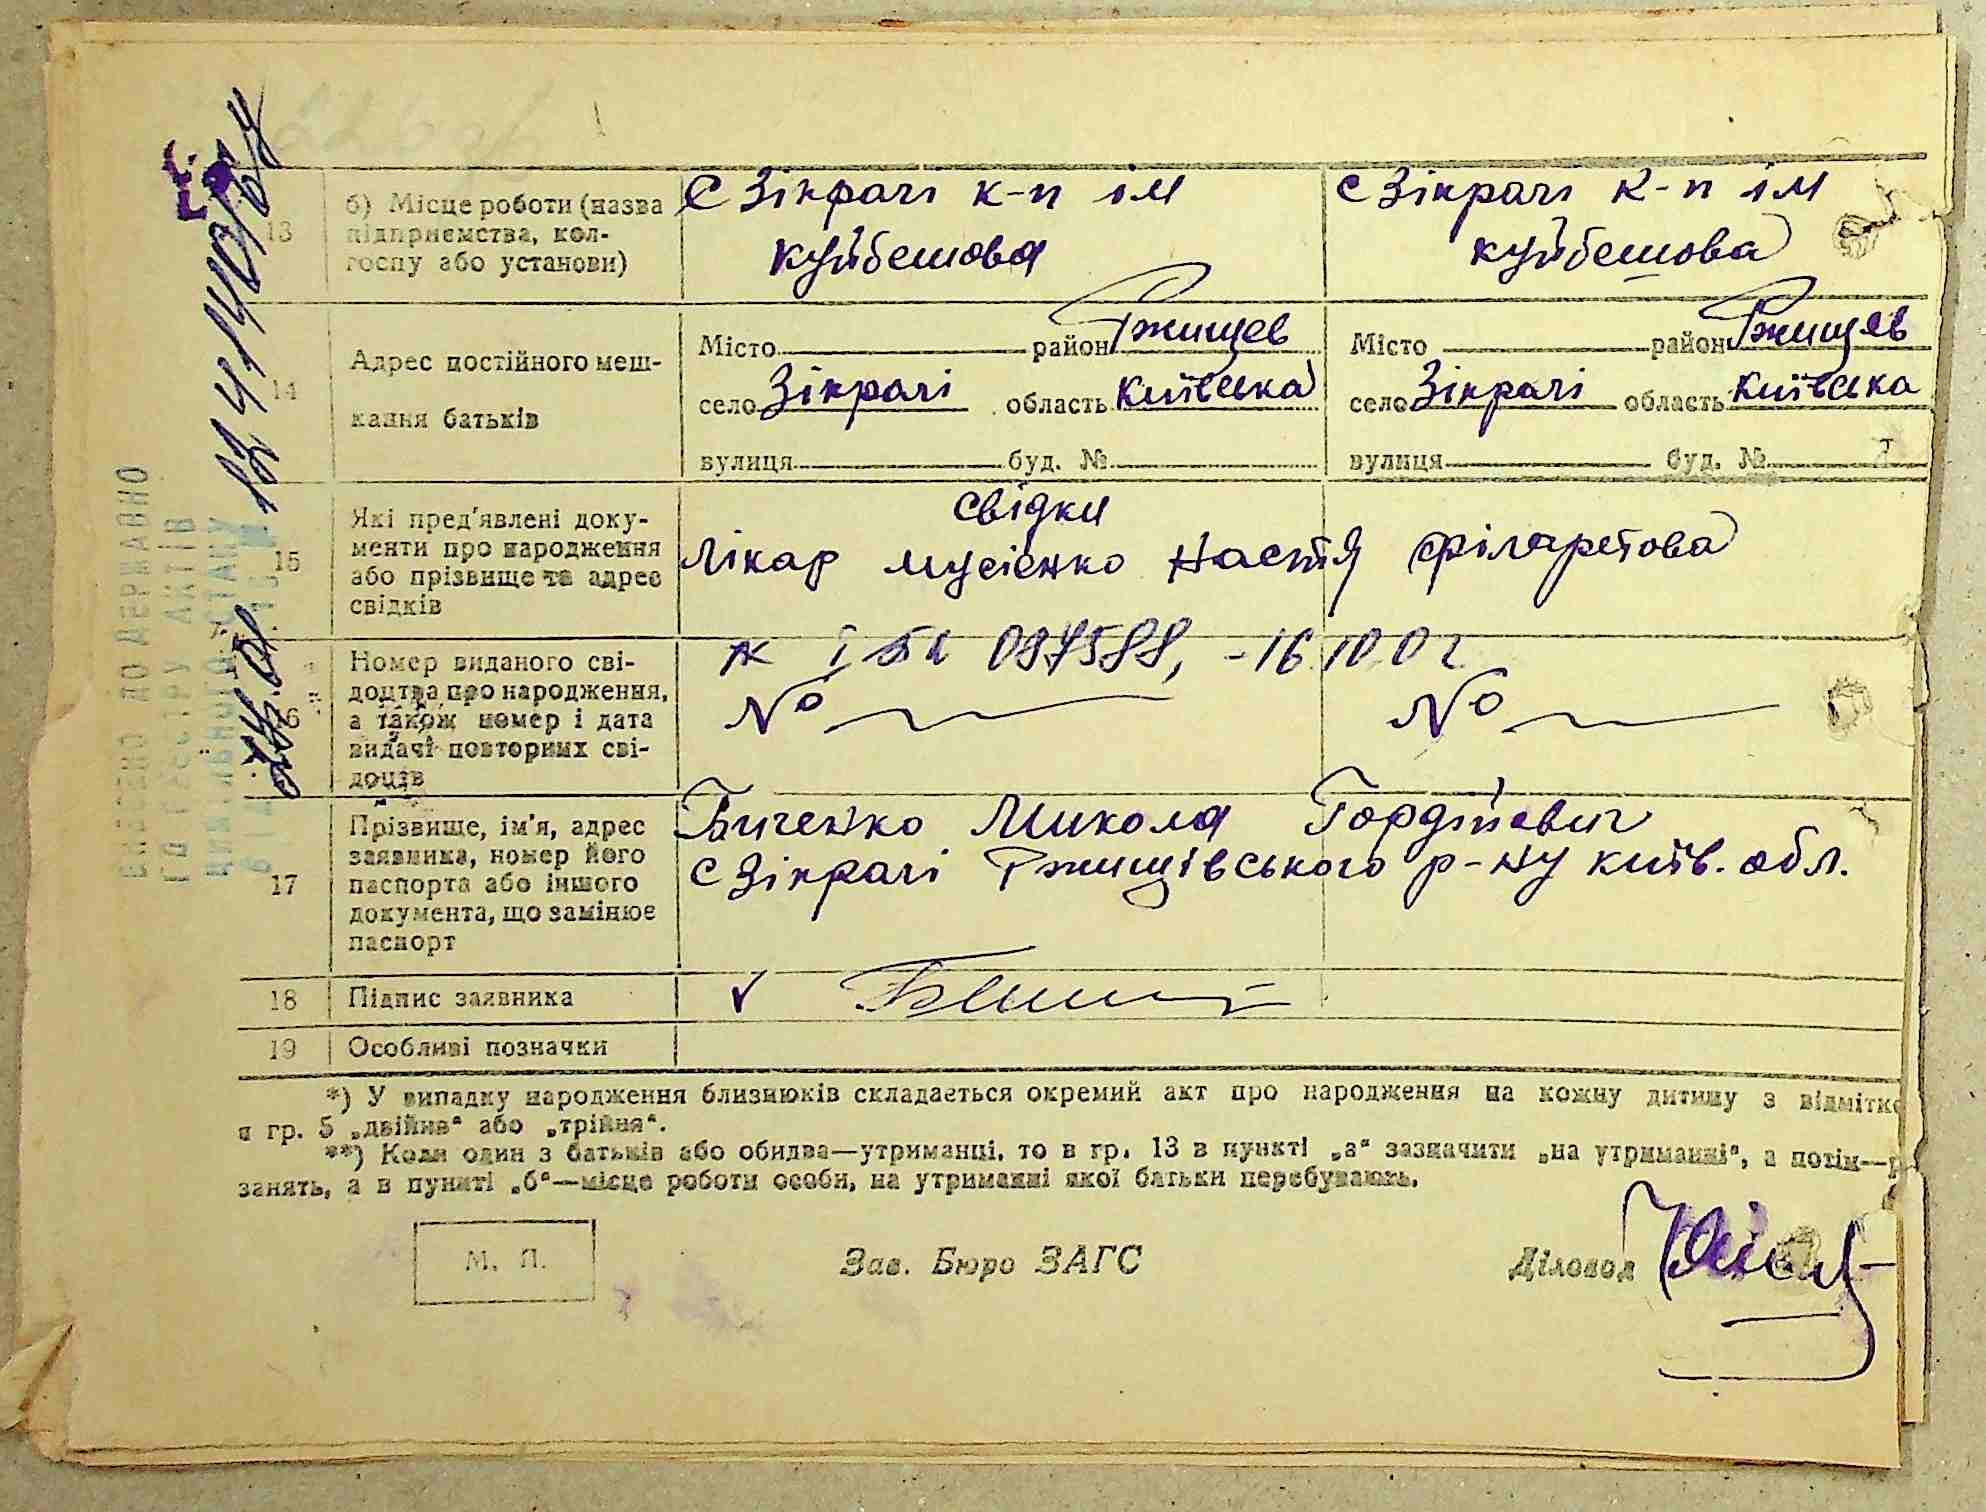 13
б) Місце роботи (назва
підприємства, кол-
госпу або установи)
с Зікрачі к-п ім
куйбешова
с Зікрачі к-п ім
куйбешова
14
Адрес постійного меш-
кання батьків
Місто район Ржищев
село Зікрачі область Київська
вулиця буд. №
Місто район Ржищев
село Зікрачі область Київська
вулиця буд. №
15
Які пред'явлені доку-
менти про народження
або прізвище та адрес
свідків
свідки
Лікар мусієнко Настя Філаретова
16
Номер виданого сві-
доцтва про народження,
а також номер і дата
видачі повторних сві-
доцтв
087588, -16.10.02
№
№
17
Прізвище, ім'я, адрес
заявника, номер його
паспорта або іншого
документа, що замінює
паспорт
Биченко Микола Гордійович
с Зікрачі Ржищівського р-ну київ. обл.
18
Підпис заявника
19
Особливі позначки
*) У випадку народження близнюків складається окремий акт про народження на кожну дитину з відмітко
в гр. 5 „двійня“ або „трійня“.
**) Коли один з батьків або обидва—утриманці, то в гр. 13 в пункті „а“ зазначити „на утриманні“, а потім—р
занять, а в пункті „б“—місце роботи особи, на утриманні якої батьки перебувають.
М. П.
Зав. Бюро ЗАГС
Діловод
ВНЕСЕНО ДО ДЕРЖАВНО
ГО РЕЄСТРУ АКТІВ
ЦИВІЛЬНОГО СТАНУ